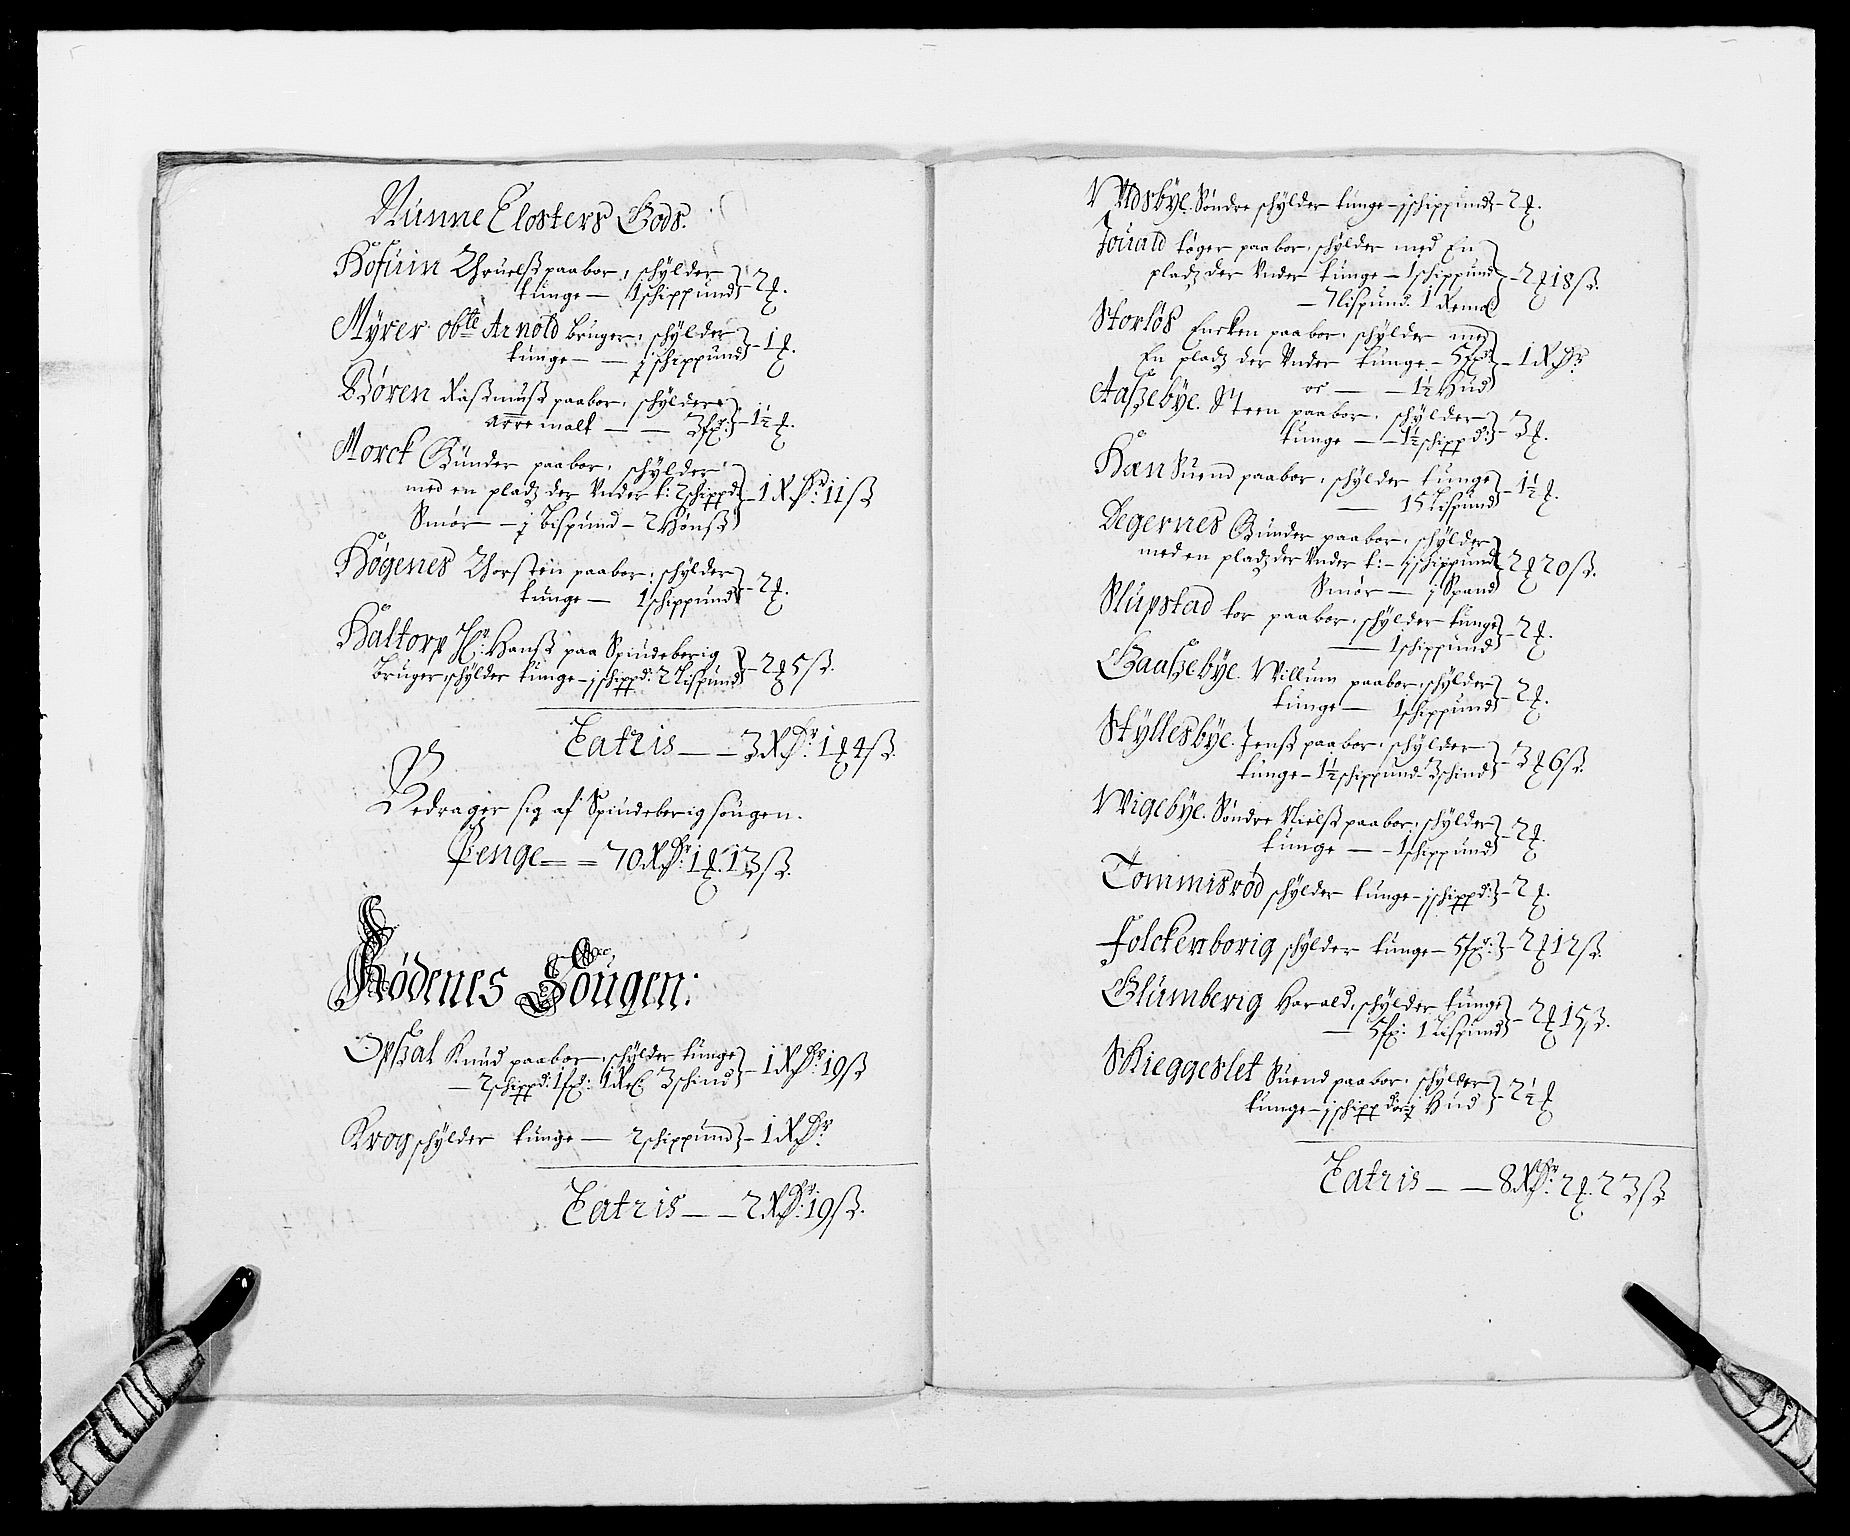 Nunne Closters Gods.
Hofuin Truelß paabor, schylder
tunge — 1 schippund — 2 ₰.
Myrer obte Arnold bruger, schylder
tunge — — ½ schippund — 1 ₰.
Børen Raßmuß paabor, schylder
arre malt — — 3 sp: — 1½ ₰.
Morck Gunder paabor, schylder
med en pladz der Vnder t: 2 schippd — 1 Rdr. 11 ß
Smør — j bispund — 2 Hønß
Høgenes Thorsten paabor, schylder
tunge — 1 schippund — 2 ₰.
Haltorp Hr: Hanß paa Spindeberig
Bruger, schylder tunge — j schippd: 2 Lispund — 2 ₰ 5 ß.
Latris — — 3 Rdr. 1 ₰ 4 ß.
Bedrager sig af Spindeberig sougen.
Penge — — 70 Rdr. 1 ₰. 13 ß.
Rødenes Sougen:
Opsal Knud paabor, schylder tunge
— 2 schippd: 1 sp: 1 Re: 3 schind — 1 Rdr. 19 ß
Krog schylder tunge — 2 schippund — 1 Rdr
Latris — — 2 Rdr. 19 ß.
Vdsbye. Søndre schylder tunge — j schippund — 2 ₰.
Jouald tøger paabor, schylder med En
pladz der Vnder tunge — 1 schippund — 2 ₰ 18 ß.
— 7 lispund. 1 Remel
Storløs Encken paabor, schylder med
En pladz der Vnder tunge — 5 sp — 1 Rdr
oc — — 1½ Hud
Aaszebye. Steen paabor, schylder
tunge — — 1½ schippd: — 3 ₰.
Hæn Suend paabor, schylder tunge
— 15 Lispund — 1½ ₰.
Degernes Gunder paabor, schylder
med en pladz der Vnder t: — ½ schippund — 2 ₰ 20 ß.
Smør — j Spand
Slupstad tor paabor, schylder tunge
— 1 schippund — 2 ₰.
Gaaszebye. Willum paabor, schylder
tunge — 1 schippund — 2 ₰.
Styllesbye. Jenß paabor, schylder
tunge — 1½ schippund — 3 schind — 3 ₰ 6 ß.
Wigebye. Søndre Nielß paabor, schylder
tunge — — 1 schippund — 2 ₰.
Tommisrød schylder tunge — j schippd: — 2 ₰.
Folckenborig schylder tunge — 5 sp: — 2 ₰ 12 ß.
Glumberig Harald, schylder tunge
— 5 sp: 1 Lispund — 2 ₰ 15 ß.
Skieggeslet Suend paabor, schylder
tunge — j schippd og Hud — 2½ ₰
Latris — — 8 Rdr. 2 ₰. 23 ß